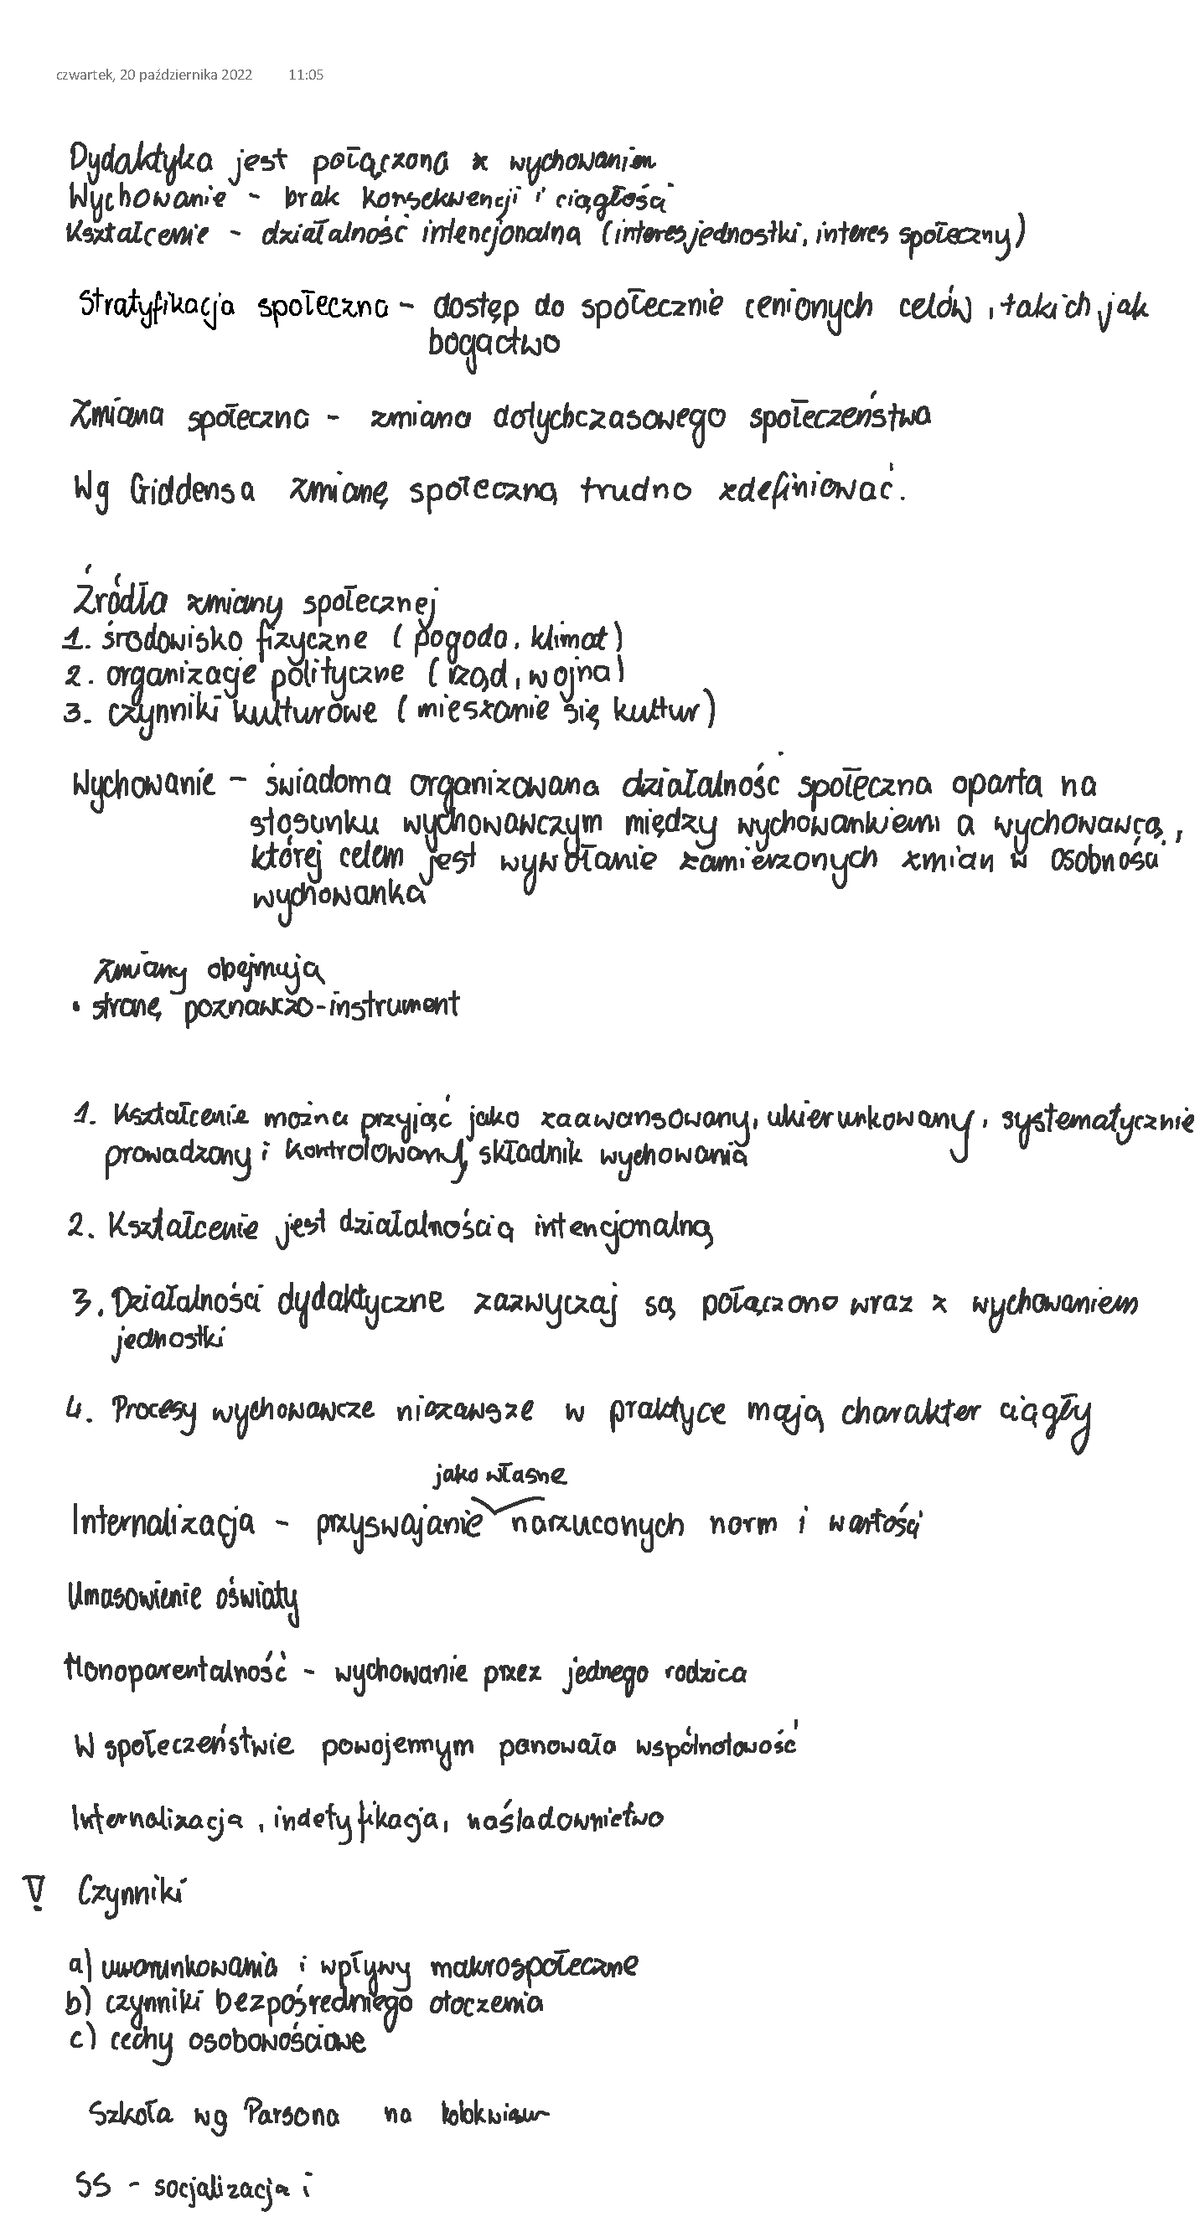 czwartek, 20 października 2022 11:05
Dydaktyka jest połączona z wychowaniem
Wychowanie - brak konsekwencji i ciągłości
Kształcenie - działalność intencjonalna (interes jednostki, interes społeczny)
Stratyfikacja społeczna - dostęp do społecznie cenionych celów, takich jak
bogactwo
Zmiana społeczna - zmiana dotychczasowego społeczeństwa
Wg Giddensa zmianę społeczną trudno zdefiniować.
Źródła zmiany społecznej
1. środowisko fizyczne (pogoda, klimat)
2. organizacje polityczne (rząd, wojna)
3. czynniki kulturowe (mieszanie się kultur)
Wychowanie - świadoma organizowana działalność społeczna oparta na
stosunku wychowawczym między wychowankiem a wychowawcą,
której celem jest wywołanie zamierzonych zmian w osobności
wychowanka
Zmiany obejmują
• stronę poznawczo-instrument
1. Kształcenie można przyjąć jako zaawansowany, ukierunkowany, systematycznie
prowadzony i kontrolowany składnik wychowania
2. Kształcenie jest działalnością intencjonalną
3. Działalności dydaktyczne zazwyczaj są połączono wraz z wychowaniem
jednostki
4. Procesy wychowawcze niezawsze w praktyce mają charakter ciągły
jako własne
Internalizacja - przyswajanie narzuconych norm i wartości
Umasowienie oświaty
Monoparentalność - wychowanie przez jednego rodzica
W społeczeństwie powojennym panowała wspólnotowość
Internalizacja, indetyfikacja, naśladownictwo
Czynniki
a) uwarunkowania i wpływy makrospołeczne
b) czynniki bezpośredniego otoczenia
c) cechy osobowościowe
Szkoła wg Parsona na kolokwium
SS - socjalizacja i